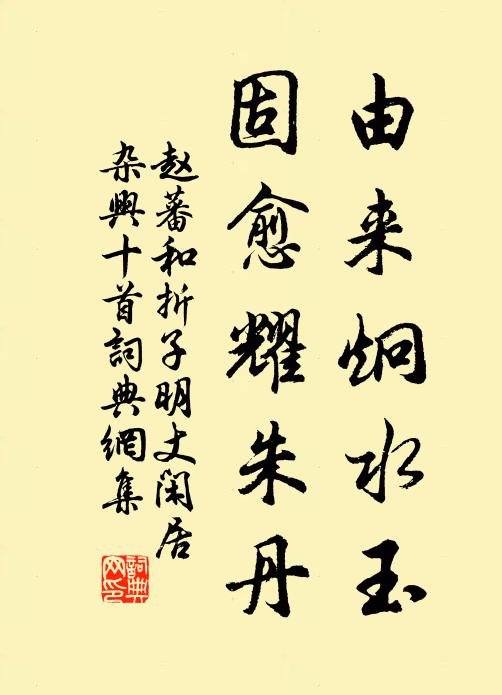 由来炯水玉
固愈耀朱丹
赵蕃和折子明丈闲居
杂兴十首词典網集
詞典網印